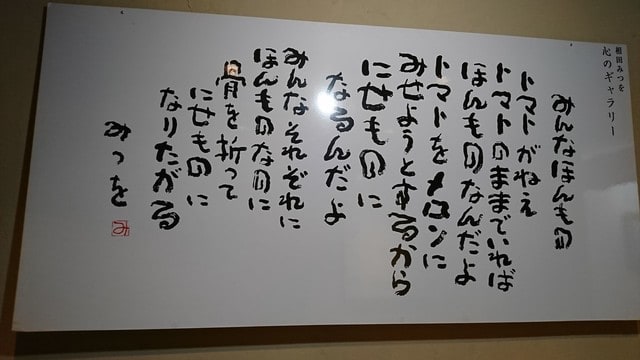 相田みつを
心のギャラリー
みんなほんもの
トマトがねえ
トマトのままでいれば
ほんものなんだよ
トマトをメロンに
みせようとするから
にせものに
なるんだよ
みんなそれぞれに
ほんものなのに
骨を折って
にせものに
なりたがる
みつを
み